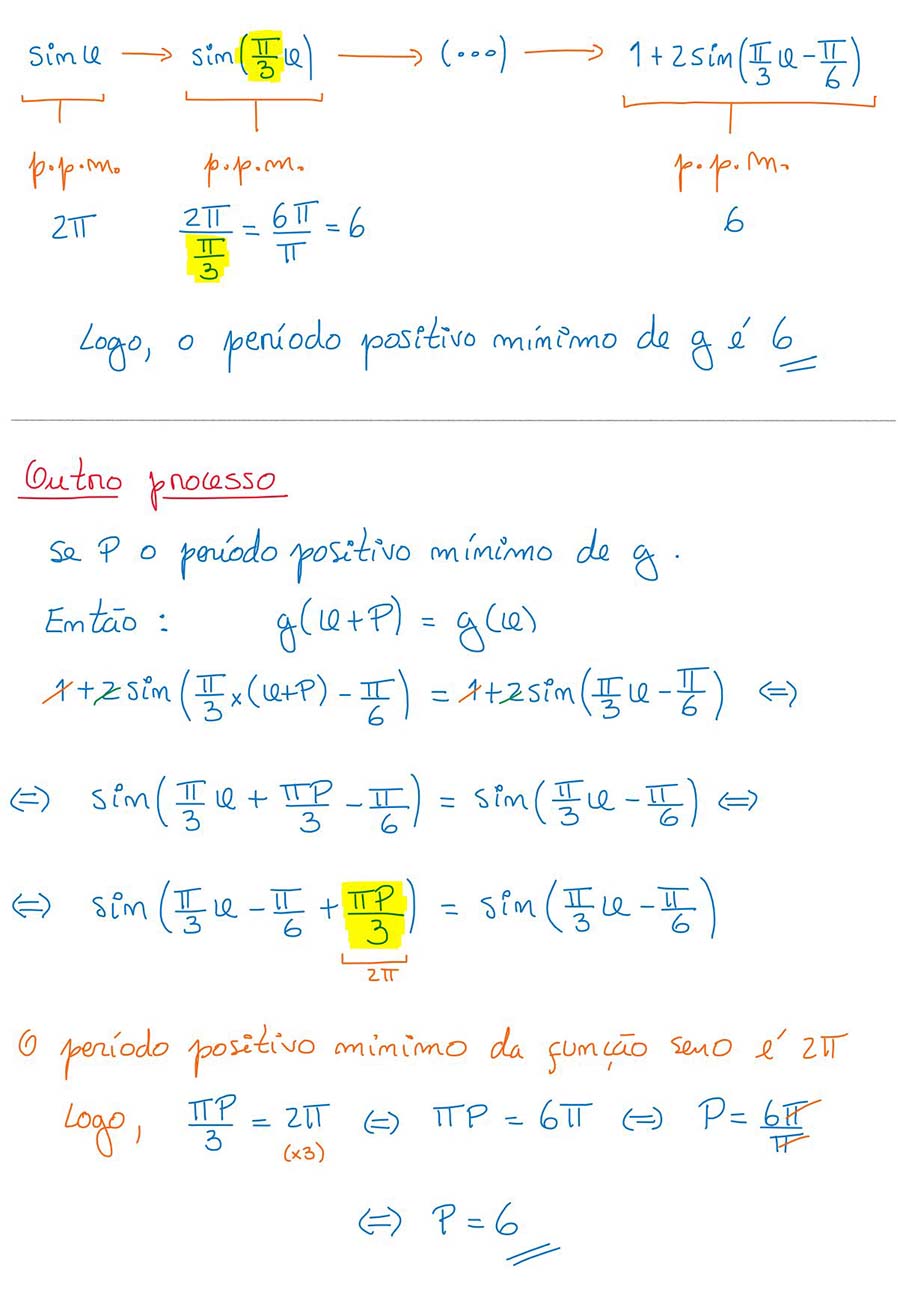 sin x → sin(π/3 x) → (...) → 1+2sin(π/3 x − π/6)
p.p.m. p.p.m. p.p.m.
2π 2π/(π/3) = 6π/π = 6 6
Logo, o período positivo mínimo de g é 6
Outro processo
Se P o período positivo mínimo de g.
Então : g(x+P) = g(x)
1+2sin(π/3×(x+P) − π/6) = 1+2sin(π/3 x − π/6) ⇔
⇔ sin(π/3 x + πP/3 − π/6) = sin(π/3 x − π/6) ⇔
⇔ sin(π/3 x − π/6 + πP/3) = sin(π/3 x − π/6)
2π
O período positivo minimo da função seno é 2π
Logo, πP/3 = 2π ⇔ πP = 6π ⇔ P = 6π/π
(×3)
⇔ P = 6